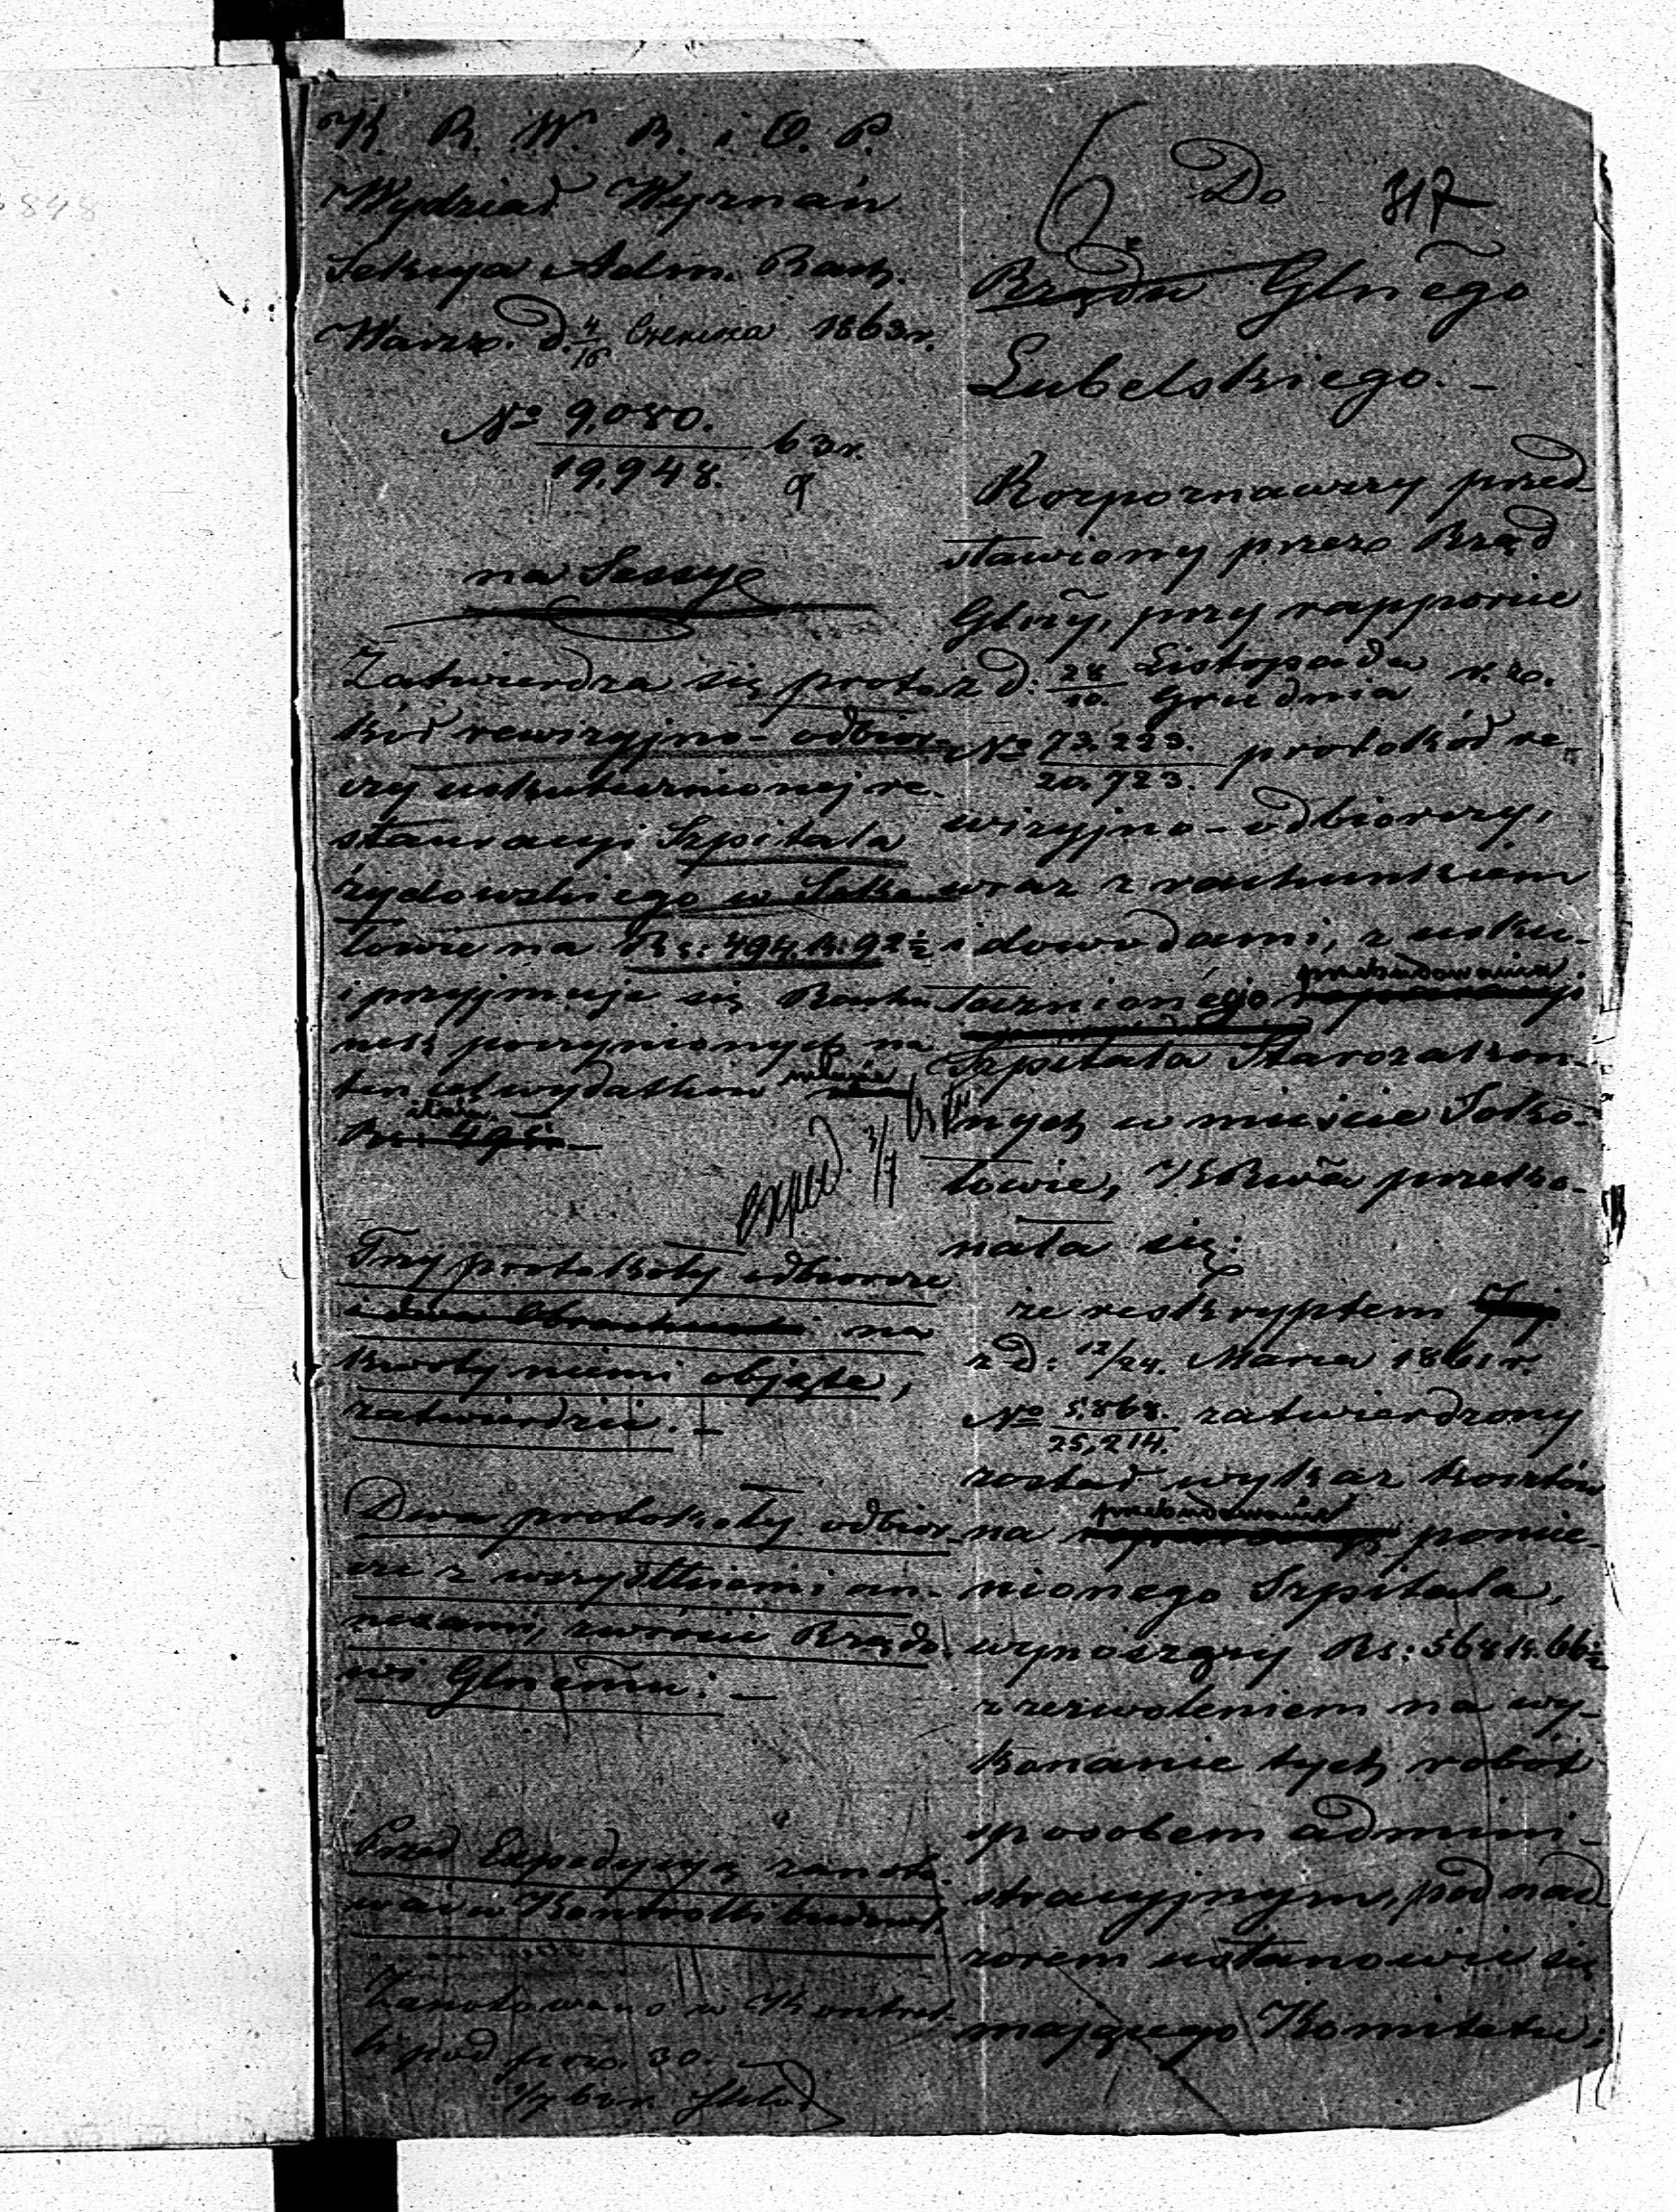 K. R. W. R. i O. P.
Wydział Wyznań
Sekcya Adm. Rach.
Warsz. d. 4/16 Czerwca 1863 r.
№ 9,080. / 19,948. 63 r.
na Sessyę
Zatwierdza się proto-
kół rewizyjno-odbior-
czy uskutecznionej re-
stauracyi Szpitala
żydowskiego w Soko-
łowie na Rs: 494. k: 92½
i przyjmuje się Rachu
nek poczynionych na
ten cel wydatków
Rs: 495. –
exped. 3/7
Trzy protokoły odbiorcze
i dwa Obrachunki na
kwoty niemi objęte,
zatwierdzić. –
Dwa protokoły odbior-
cze z wszystkiemi an-
nexami, zwrócić Rządo-
wi Glnemu. –
Przed Expedycyą zanoto-
wać w Kontrolli budowl.
Zanotowano w Kontrol-
li pod poz. 30.
1/7 63 r.
Do 317
Rządu Glnego
Lubelskiego. –
Rozpoznawszy przed-
stawiony przez Rząd
Glny, przy rapporcie
z d: 28/10. Listopada/Grudnia r. z.
№ 73.233. / 20.723. protokół re-
wizyjno-odbiorczy,
wraz z rachunkiem
i dowodami, z usku-
tecznionego przebudowania
Szpitala Starozakon-
nych w mieście Soko-
łowie, KRwa przeko-
nała się:
że reskryptem
z d: 12/24. Marca 1861 r.
№ 5,868. / 25,214. zatwierdzony
został wykaz kosztów
na przebudowanie pomie-
nionego Szpitala,
wynoszący Rs: 568 k. 66½
z zezwoleniem na wy-
konanie tych robót
sposobem admini-
stracyjnym, pod nad-
zorem ustanowić się
mającego Komitetu;